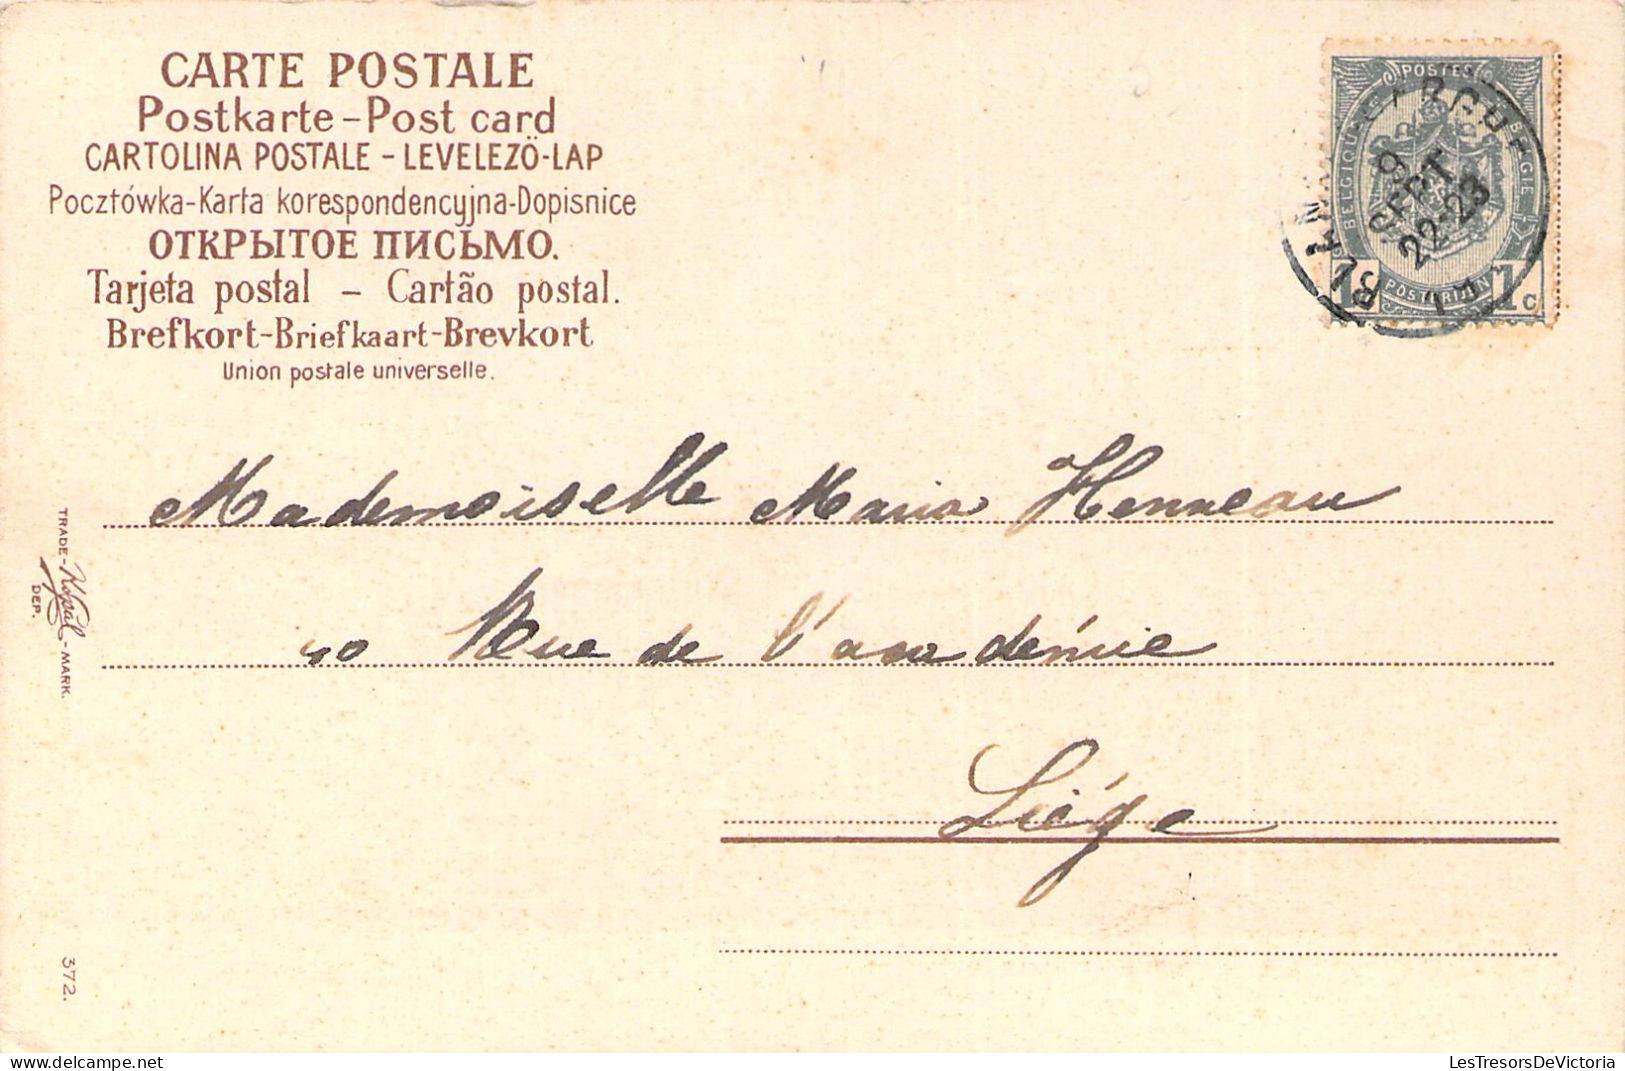 CARTE POSTALE
Postkarte-Post card
CARTOLINA POSTALE - LEVELEZÖ-LAP
Pocztówka-Karta korespondencyjna-Dopisnice
ОТКРЫТОЕ ПИСЬМО.
Tarjeta postal - Cartão postal.
Brefkort-Briefkaart-Brevkort
Union postale universelle.
POSTES
BELGIQUE
BELGIE
1c
POSTERIJEN
1c
9
SEPT
22-23
Mademoiselle Maria Henneau
40 Rue de l'académie
Liége
TRADE-Kopal-MARK.
DEP.
372.
LesTresorsDeVictoria